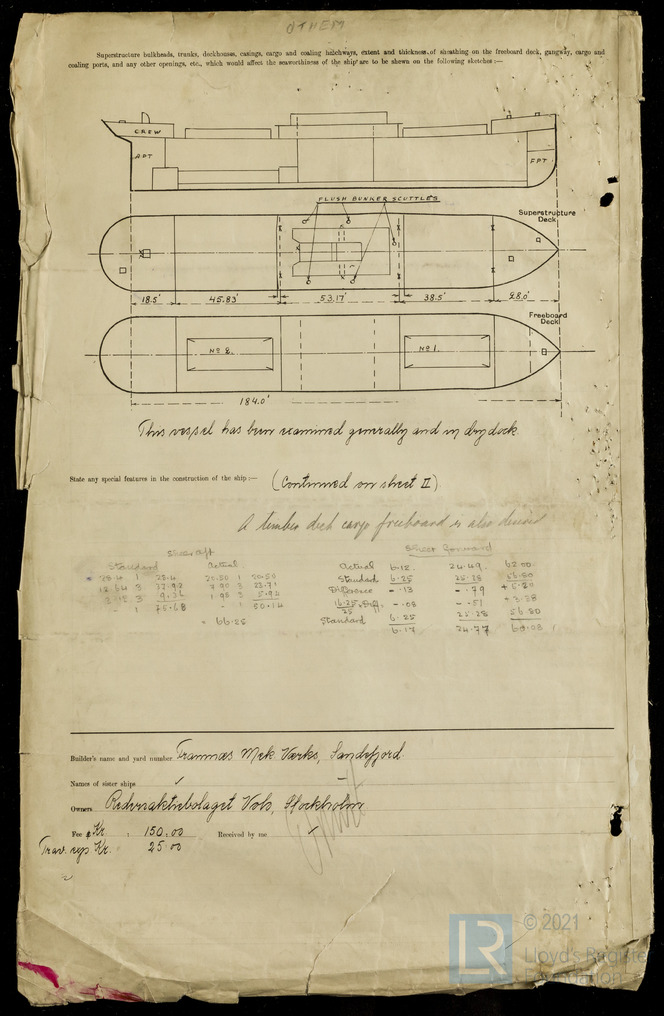 OTHEM
Superstructure bulkheads, trunks, deckhouses, casings, cargo and coaling hatchways, extent and thickness of sheathing on the freeboard deck, gangway, cargo and
coaling ports, and any other openings, etc., which would affect the seaworthiness of the ship are to be shewn on the following sketches :—
CREW
APT
FPT
FLUSH BUNKER SCUTTLES
Superstructure
Deck
18.5' 45.83' 53.17' 38.5' 28.0'
Freeboard
Deck
No 2. No 1.
184.0'
This vessel has been examined generally and in dry dock
State any special features in the construction of the ship :— (Continued on sheet II)
A timber deck cargo freeboard is also desired
Sheer aft
Sheer forward
Standard Actual
Actual 6.12. 24.49. 62.00
1 28.4 20.50 1 20.50
Standard 6.25 25.28 56.80
3 3
Difference - .13 - .79 + 5.20
3 9.36 1.98 3 5.94
- .08 - .51 + 3.38
1 - 1
Standard 6.25 25.28 56.80
6.17 24.77
Builder's name and yard number Framnæs Mek. Værks, Sandefjord.
Names of sister ships
Owners Rederiaktiebolaget Stockholm
Fee Kr : 150.00 Received by me
Trav. exps Kr. 25.00
© 2021
LR
Lloyd's Register
Foundation